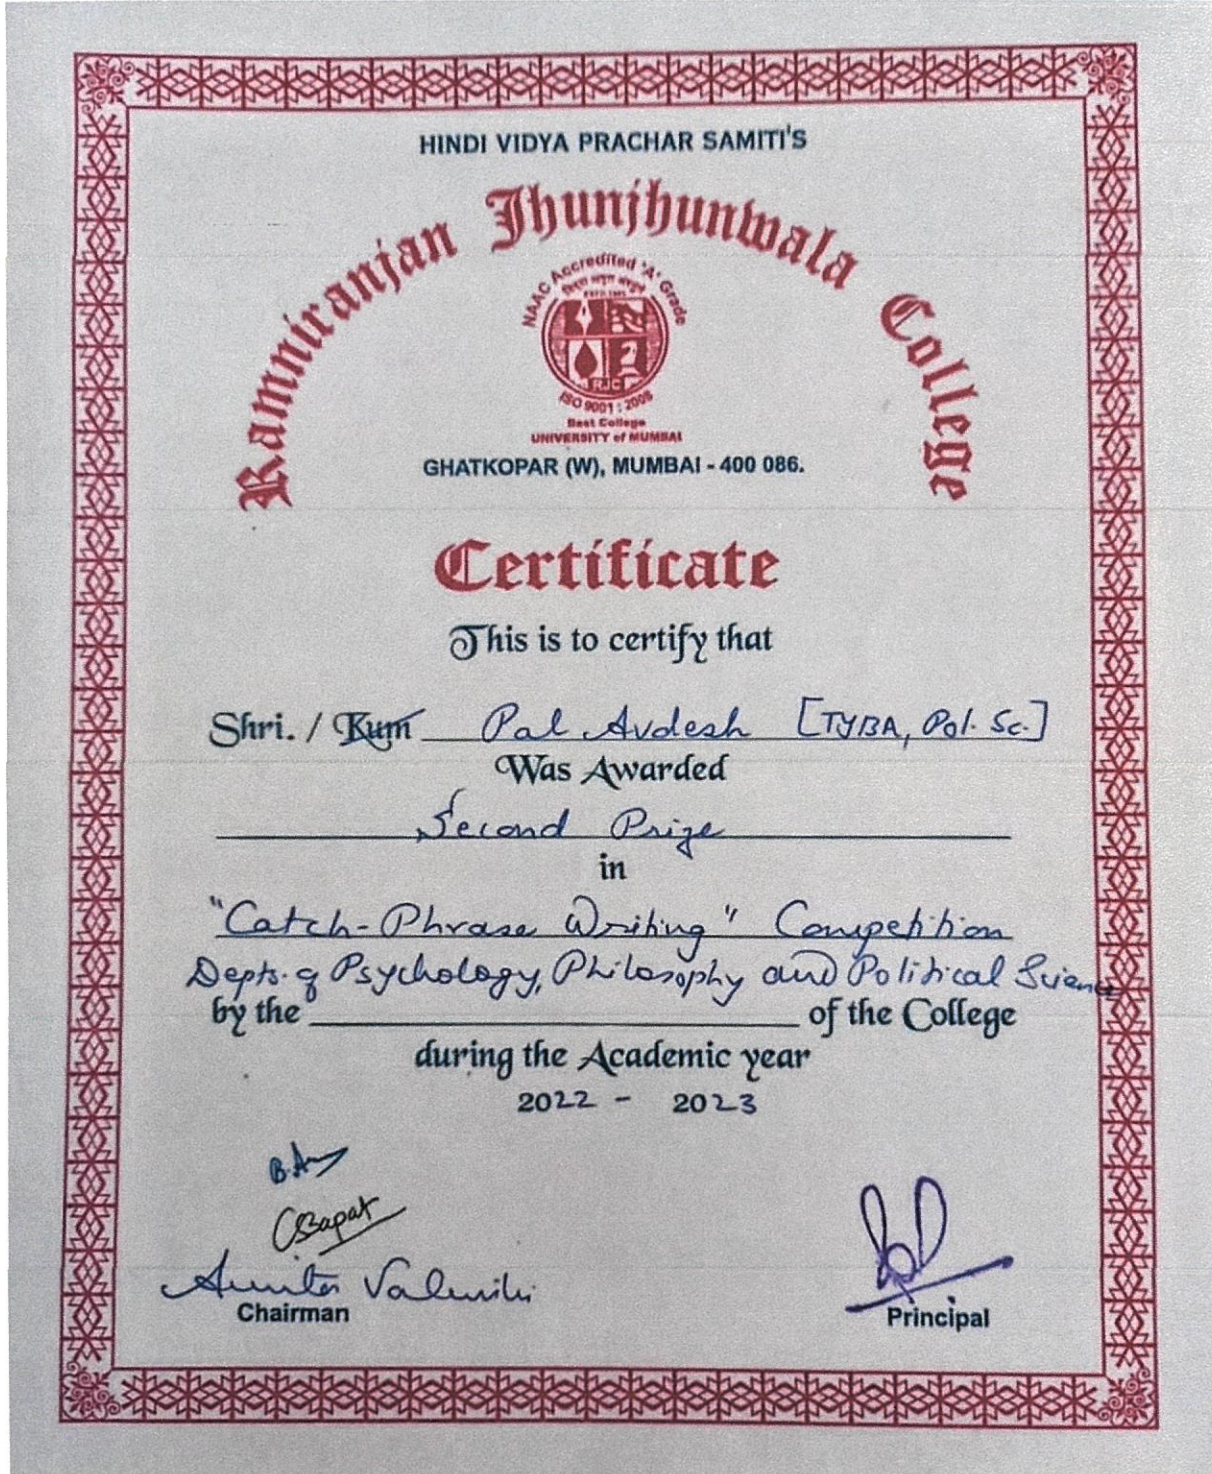 HINDI VIDYA PRACHAR SAMITI'S
Ramniranjan Jhunjhunwala College
NAAC Accredited 'A' Grade
RJC
ISO 9001 : 2008
Best College
UNIVERSITY of MUMBAI
GHATKOPAR (W), MUMBAI - 400 086.
Certificate
This is to certify that
Shri. / Kum Pal Avdesh [TYBA, Pol. Sc.]
Was Awarded
Second Prize
in
"Catch-Phrase Writing" Competition
Depts. of Psychology, Philosophy and Political Science
by the of the College
during the Academic year
2022 - 2023
CSBapat
Chairman
Principal